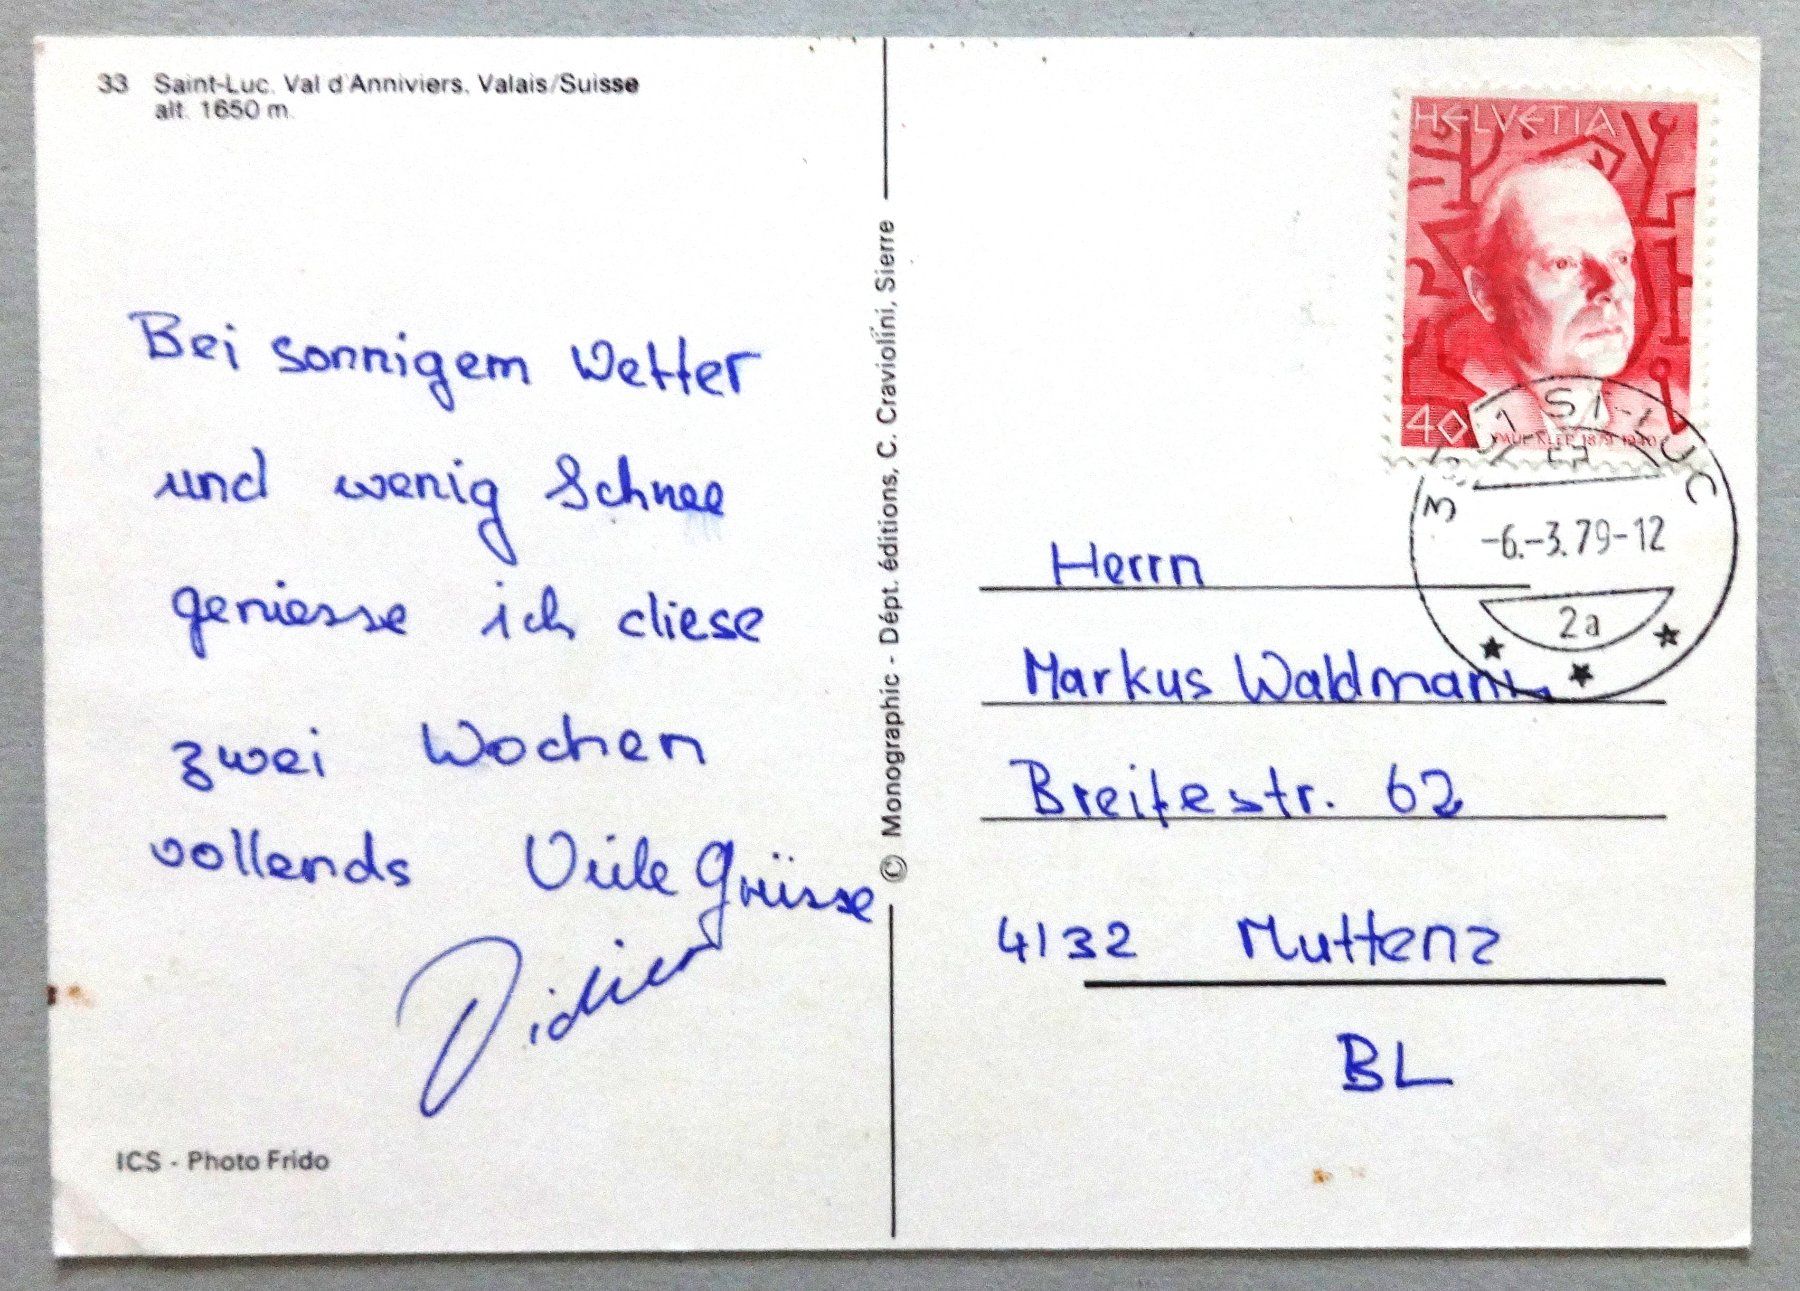 33 Saint-Luc. Val d'Anniviers. Valais/Suisse
alt. 1650 m.
Bei sonnigem Wetter
und wenig Schnee
geniesse ich diese
zwei Wochen
vollends Viele Grüsse
Didier
ICS - Photo Frido
© Monographic - Dépt. éditions, C. Craviolini, Sierre
HELVETIA
40
PAUL KLEE 1879-1940
ST-LUC
-6.-3.79-12
2a
Herrn
Markus Waldmann
Breitestr. 62
4132 Muttenz
BL